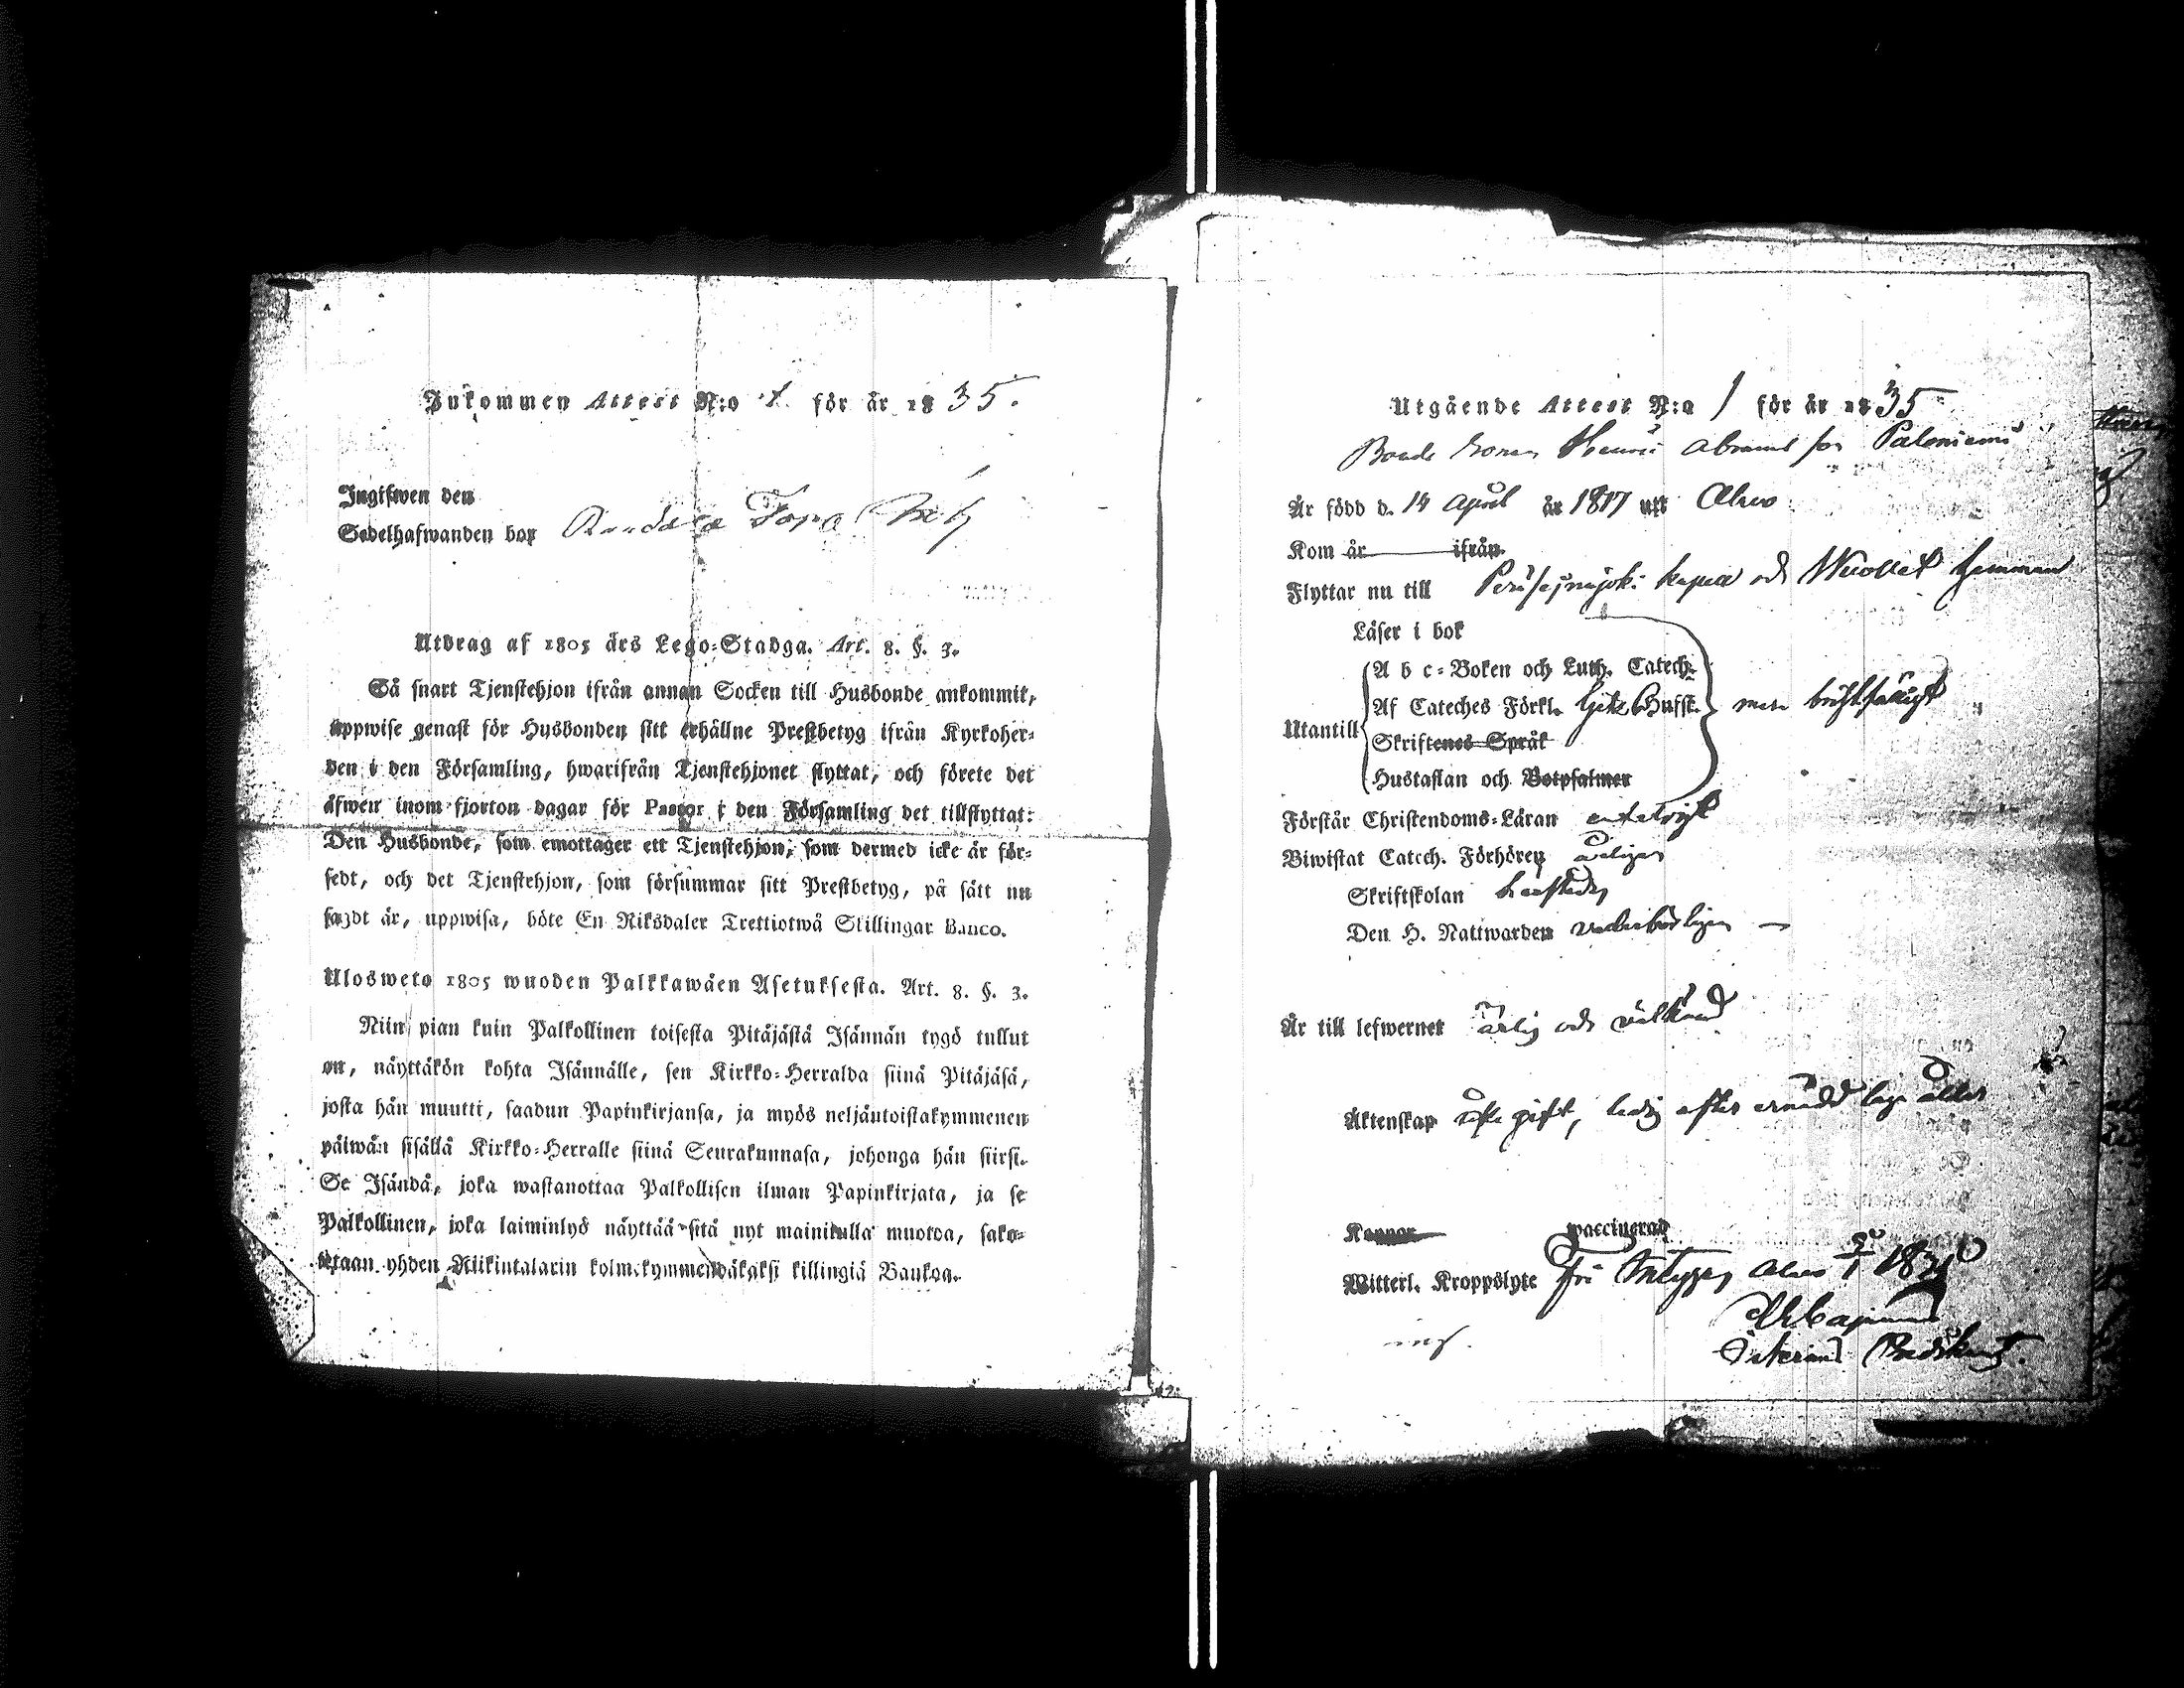 Inkommen Attest N:o 1 för år 1835.
Ingifwen den
Sedelhafwanden bor
Utdrag af 1805 års Lego-Stadga. Art. 8. §. 3.
Så snart Tjenstehjon ifrån annan Socken till Husbonde ankommit,
uppwise genast för Husbonden sitt erhållne Prestbetyg ifrån Kyrkoher-
den i den Församling, hwarifrån Tjenstehjonet flyttat, och förete det
äfwen inom fjorton dagar för Pastor i den Församling det tillflyttat:
Den Husbonde, som emottager ett Tjenstehjon, som dermed icke är för-
sedt, och det Tjenstehjon, som försummar sitt Prestbetyg, på sätt nu
sagdt är, uppwisa, böte En Riksdaler Trettiotwå Skillingar Banco.
Ulosweto 1805 wuoden Palkkawäen Asetuksesta. Art. 8. §. 3.
Niin pian kuin Palkollinen toisesta Pitäjästä Isännän tygö tullut
on, näyttäkön kohta Isännälle, sen Kirkko-Herralda siinä Pitäjäsä,
josta hän muutti, saadun Papinkirjansa, ja myös neljäntoistakymmenen
päiwän sisällä Kirkko-Herralle siinä Seurakunnasa, johonga hän siirsi.
Se Isändä, joka wastanottaa Palkollisen ilman Papinkirjata, ja se
Palkollinen, joka laiminlyö näyttää sitä nyt mainitulla muotoa, sako-
tetaan yhden Riikintalarin kolmekymmendäkaksi killingiä Bankoa.
Utgående Attest N:o 1 för år 1835
Bonde sonen Henric Abrams son Paloniemi
Är född d. 14 April år 1817 uti Alavo
Kom år ifrån
Flyttar nu till Peräseinäjoki kapell och Wuollet hemman
Läser i bok
A b c-Boken och Luth. Catech.
Utantill Af Cateches Förkl. Hufst. men bristfälligt
Skriftenes Språk
Hustaflan och Botpsalmer
Förstår Christendoms-Läran enfaldigt
Biwistat Catech. Förhören årligen
Skriftskolan
Den H. Nattwarden vederbörligen
Är till lefwernet ärlig och välkänd
Äktenskap ogift, ledig efter ålder
Koppor waccinerad
Witterl. Kroppslyte